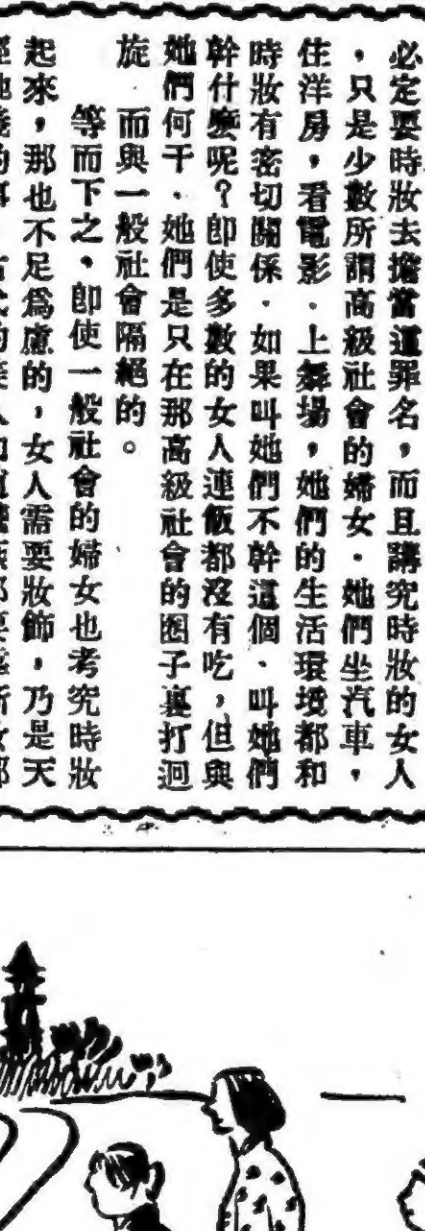 必定要時妝去擔當這罪名,而且講究時妝的女人
,只是少數所謂高級社會的婦女.她們坐汽車,
住洋房,看電影.上舞場,她們的生活環境都和
時妝有密切關係.如果叫她們不幹這個.叫她們
幹什麼呢?卽使多數的女人連飯都沒有吃,但與
她們何干.她們是只在那高級社會的圈子裏打迴
旋 而與一般社會隔絕的。
等而下之.卽使一般社會的婦女也考究時妝
起來,那也不足爲慮的,女人需要妝飾,乃是天